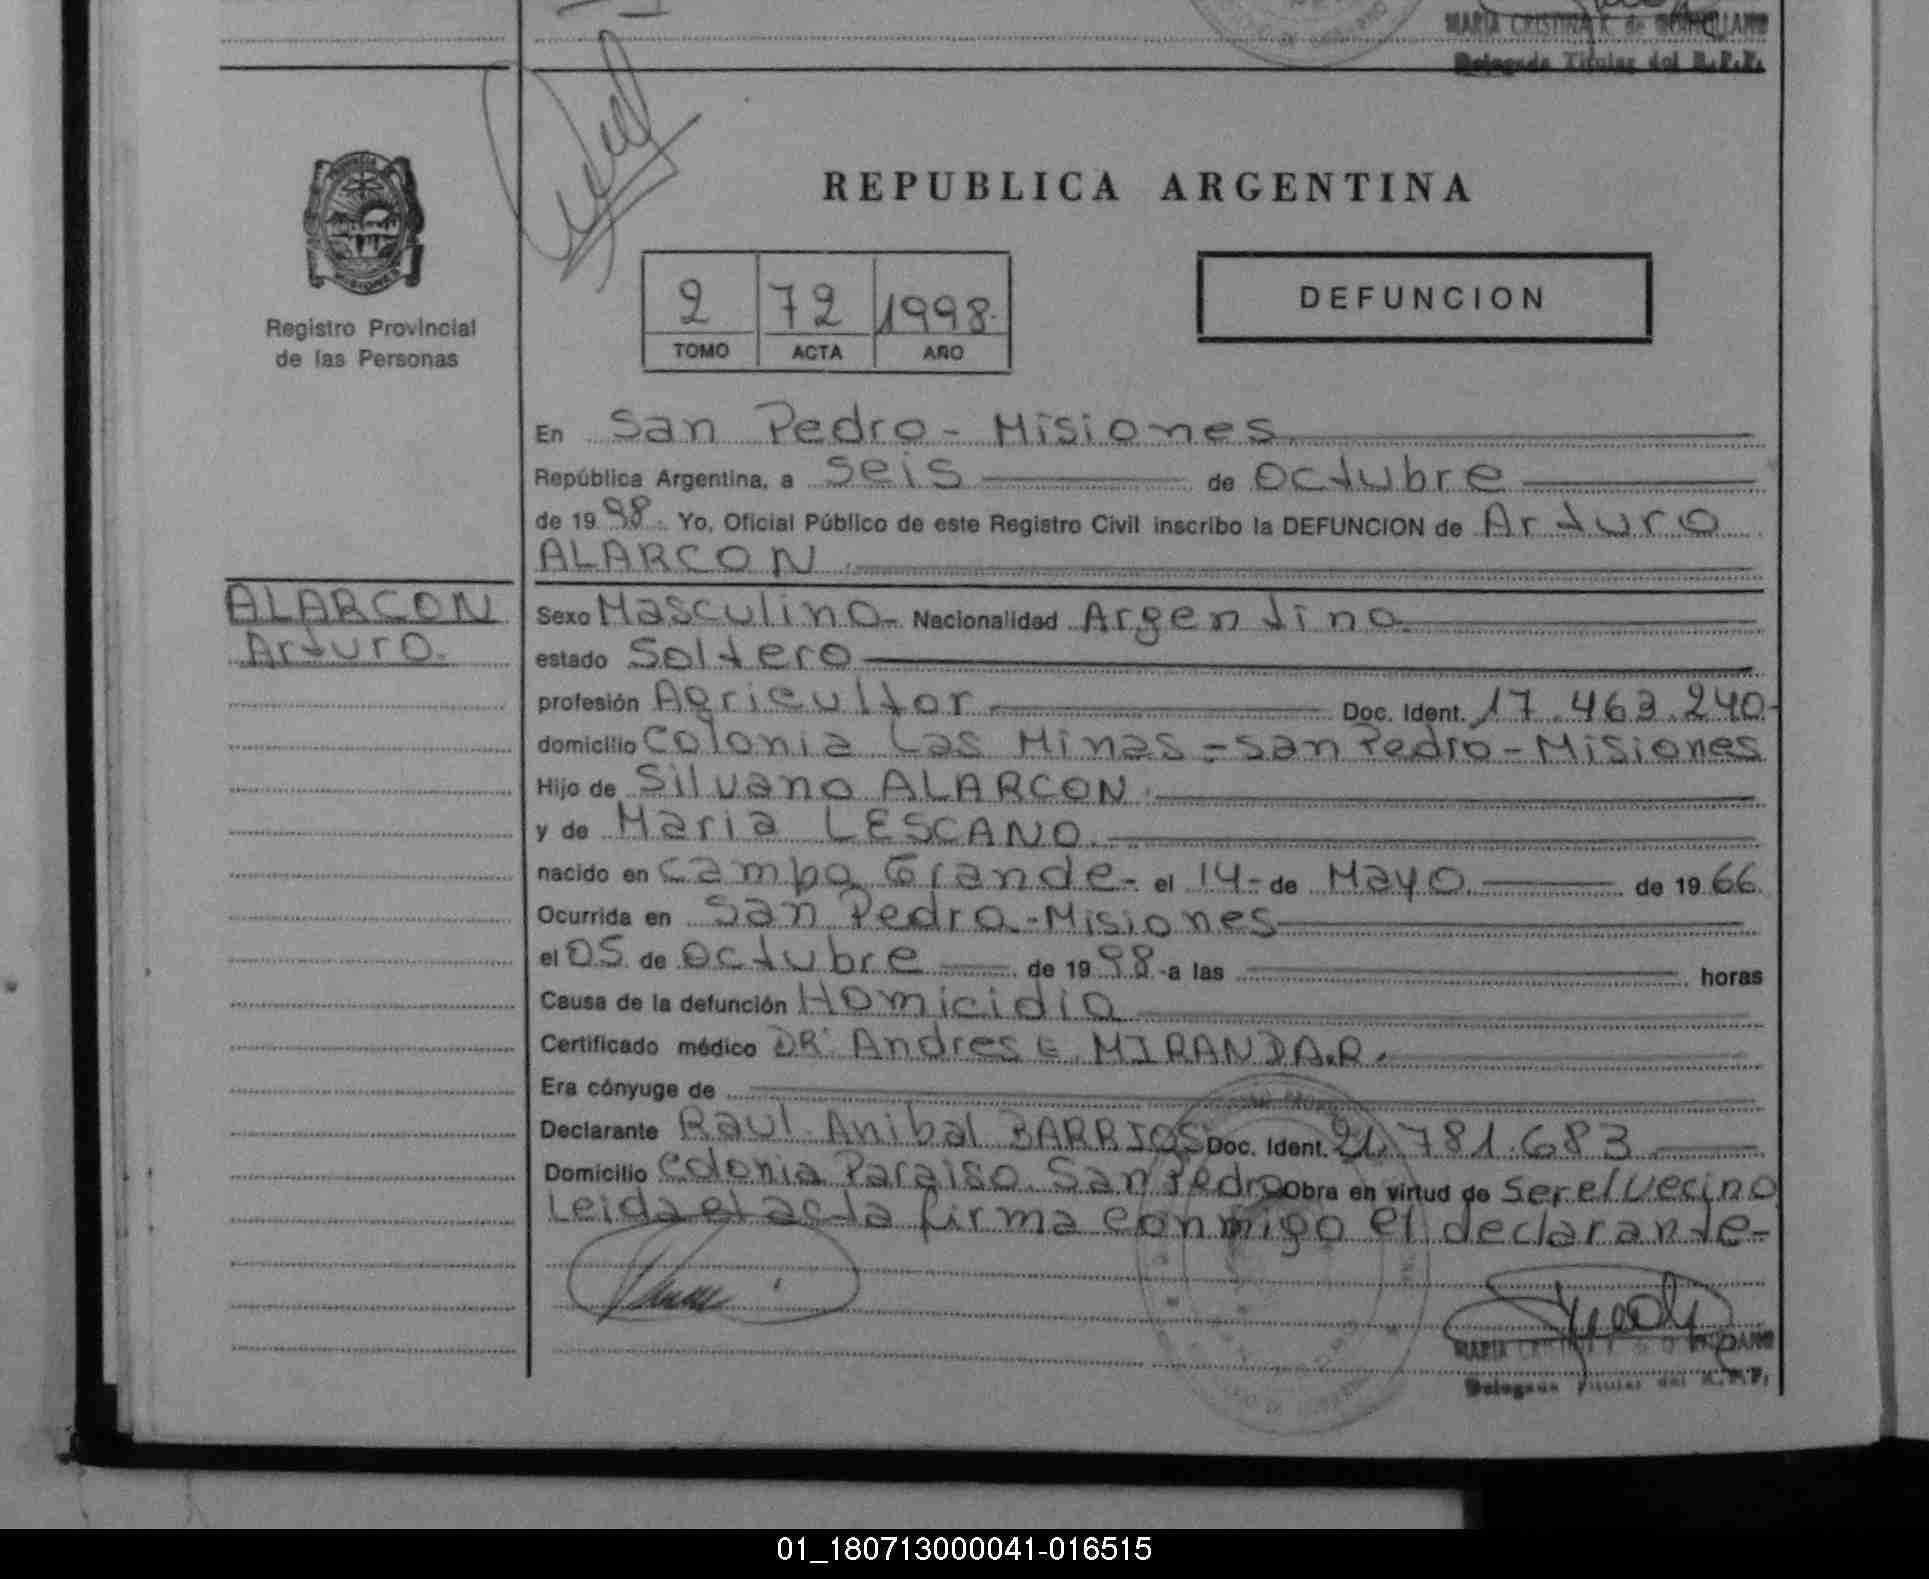 MARIA CRISTINA K. de
Delegada Titular del R.P.P.
REPUBLICA ARGENTINA
PROVINCIA
MISIONES
Registro Provincial
de las Personas
2 72 1998.
TOMO ACTA AÑO
DEFUNCION
En San Pedro - Misiones
República Argentina, a seis de octubre
de 1998. Yo, Oficial Público de este Registro Civil inscribo la DEFUNCION de Arturo
ALARCON
ALARCON
Arturo.
Sexo Masculino - Nacionalidad Argentino
estado Soltero
profesión Agricultor Doc. Ident. 17.463.240-
domicilio Colonia Las Minas - San Pedro - Misiones
Hijo de Silvano ALARCON.
y de Maria LESCANO.
nacido en Campo Grande - el 14 - de Mayo de 1966
Ocurrida en San Pedro - Misiones
el 05 de octubre de 1998 - a las horas
Causa de la defunción Homicidio
Certificado médico DR. Andres E MIRANDA.R.
Era cónyuge de
Declarante Raul Anibal BARRIOS Doc. Ident. 21.781.683
Domicilio Colonia Paraiso San Pedro Obra en virtud de ser el vecino
Leida el acta firma conmigo el declarante -
MARIA
Delegada Titular del R.P.P.
01_180713000041-016515